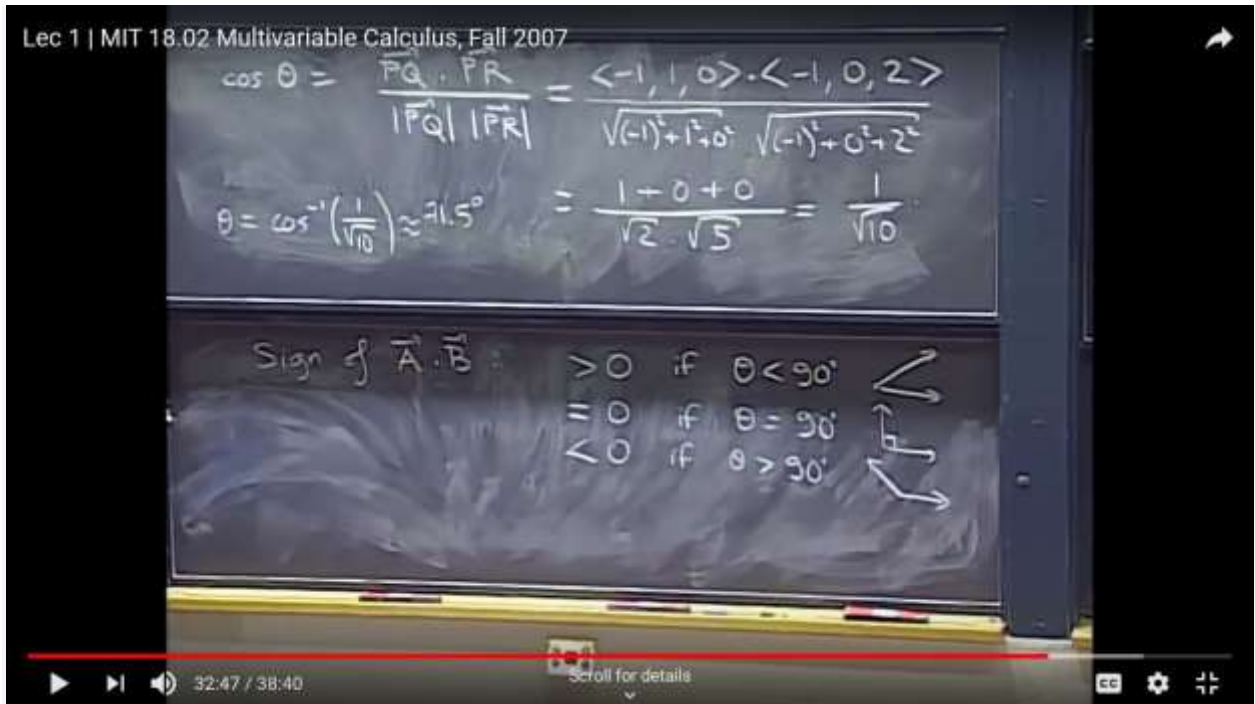 Lec 1 | MIT 18.02 Multivariable Calculus, Fall 2007
cos θ = PQ⃗ · PR⃗ / |PQ⃗| |PR⃗| = <-1, 1, 0> · <-1, 0, 2> / √((-1)²+1²+0²) √((-1)²+0²+2²)
= 1+0+0 / √2 · √5 = 1/√10
θ = cos⁻¹(1/√10) ≈ 71.5°
Sign of A⃗ · B⃗ : > 0 if θ < 90°
= 0 if θ = 90°
< 0 if θ > 90°
32:47 / 38:40
Scroll for details
CC